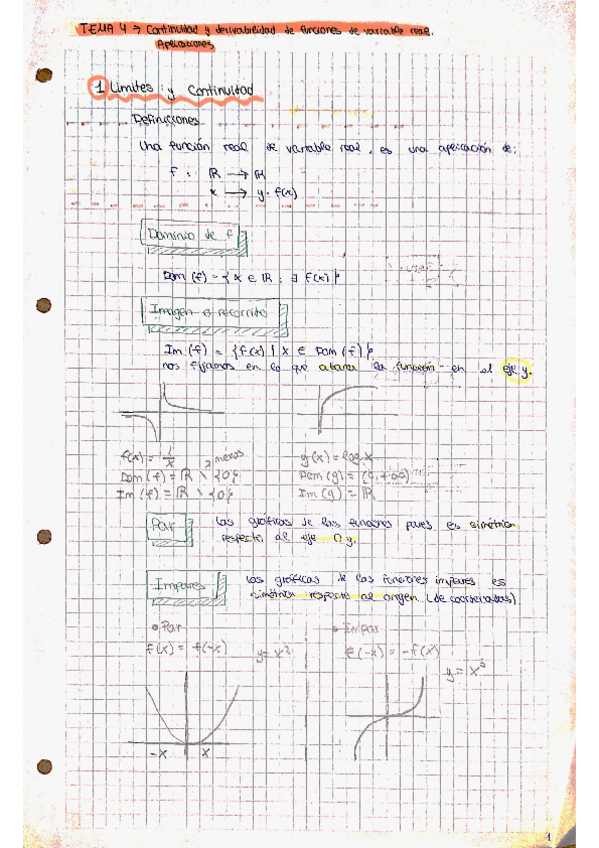 TEMA 4 → Continuidad y derivabilidad de funciones de variable real.
Aplicaciones
1 Límites y Continuidad
Definiciones
Una función real de variable real, es una aplicación de:
f: ℝ → ℝ
x → y=f(x)
Dominio de f
Dom (f) = { x ∈ ℝ : ∃ f(x) }
Imagen o recorrido
Im (f) = { f(x) | x ∈ Dom (f) }
nos fijamos en lo que abarca la función en el eje y.
f(x) = 1/x
menos
Dom (f) = ℝ \ {0}
Im (f) = ℝ \ {0}
g(x) = log x
Dom (g) = (0, +∞)
Im (g) = ℝ
Par
Las gráficas de las funciones pares es simétrica
respecto al eje Oy.
Impares
Las gráficas de las funciones impares es
simétrica respecto al origen (de coordenadas).
Par
f(x) = f(-x) y = x²
Impar
f(-x) = -f(x)
y = x³
-x x
1